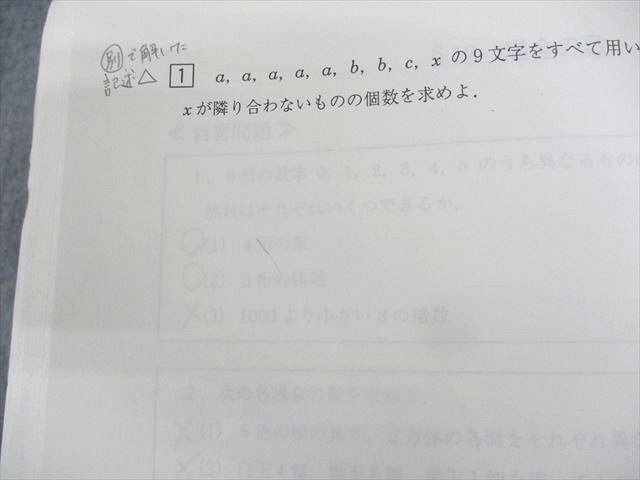 別で解いた
記述△
1 a, a, a, a, a, b, b, c, x の9文字をすべて用い
xが隣り合わないものの個数を求めよ.
≪自習問題≫
1. 6個の数字 0, 1, 2, 3, 4, 5 のうち異なるもの
然数はそれぞれいくつできるか.
(1) 4桁の数
(2) 3桁の偶数
(3) 1000より小さい3の倍数
2. 次の各場合の数を求めよ.
(1) 6色の絵の具で, 立方体の各面をそれぞれ異
(2)